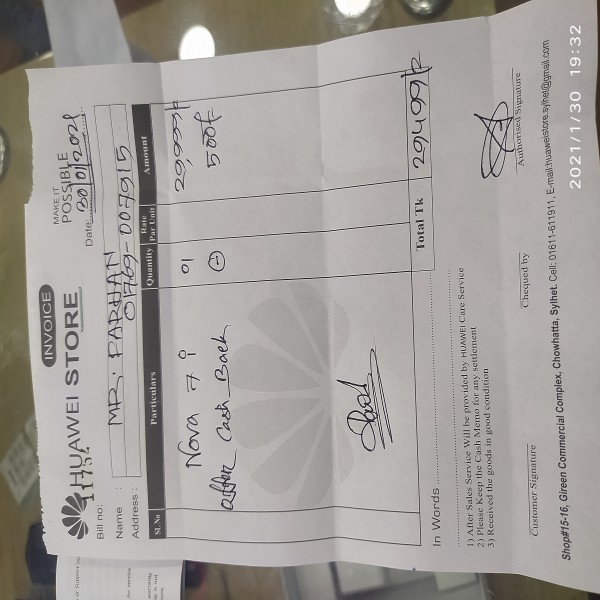 INVOICE
HUAWEI STORE
MAKE IT
POSSIBLE
Bill no:
Date: 30/01/2021
Name : MR. FARHAN
Address : 01769-007915
SL No Particulars Quantity Rate Per Unit Amount
Nova 7i 01 29,999/-
offer Cash Back (-) 500/-
Paid
Total Tk 29499/-
In Words
1) After Sales Service Will be provided by HUAWEI Care Service
2) Please Keep the Cash Memo for any settlement
3) Received the goods in good condition
Customer Signature Chequed by Authorised Signature
Shop#15-16, Gireen Commercial Complex, Chowhatta, Sylhet. Cell: 01611-611911, E-mail:huaweistore.sylhet@gmail.com
2021/1/30 19:32